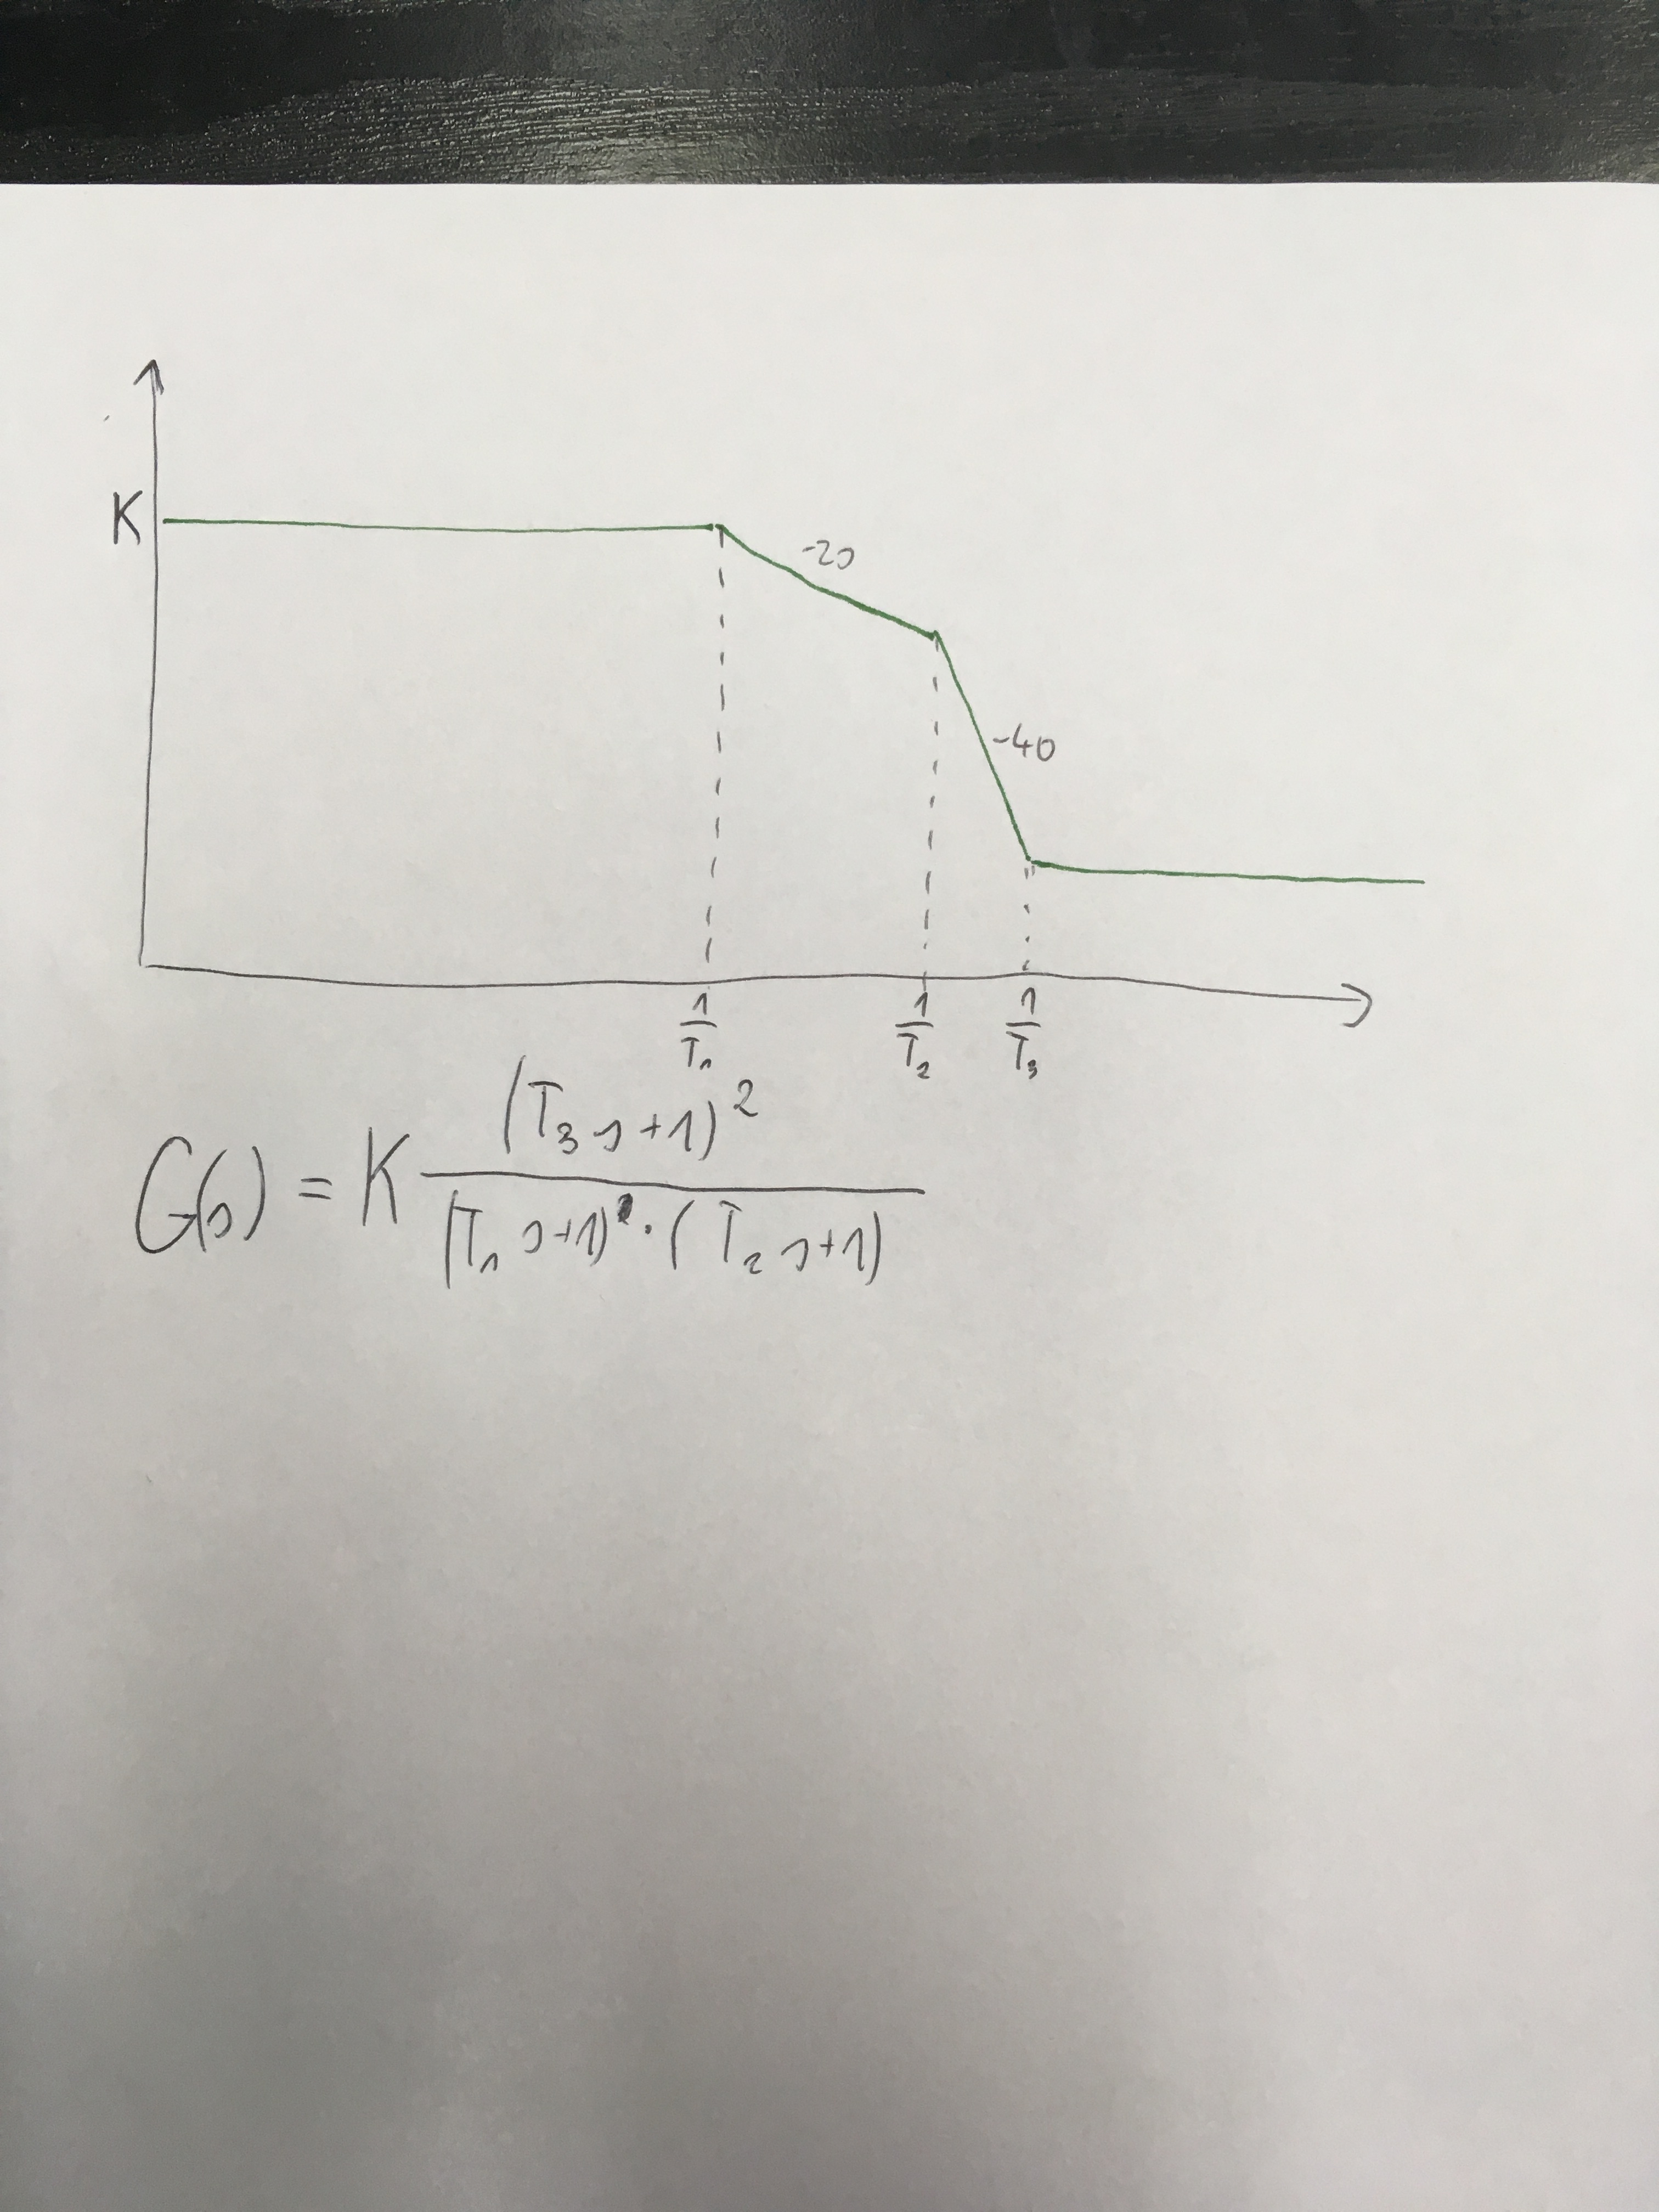 K
-20
-40
1/T₁ 1/T₂ 1/T₃
G(s) = K (T₃ s+1)² / (T₁ s+1) · (T₂ s+1)